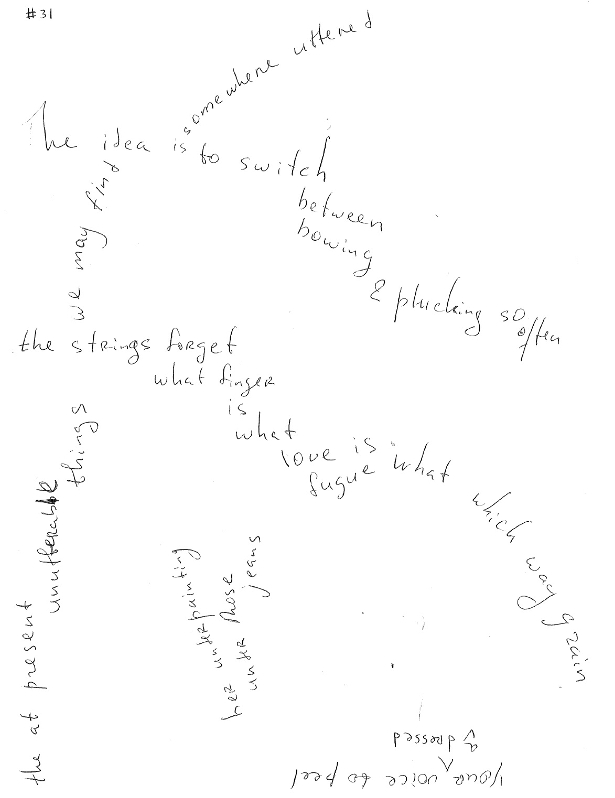 #31
The idea is to switch
between
bowing
& plucking so
often
the strings forget
what finger
is
what
love is what
fugue
which way grain
the at present
unutterable
things
we may find
somewhere uttered
her underpainting
under those
jeans
your voice to peel
a dressed